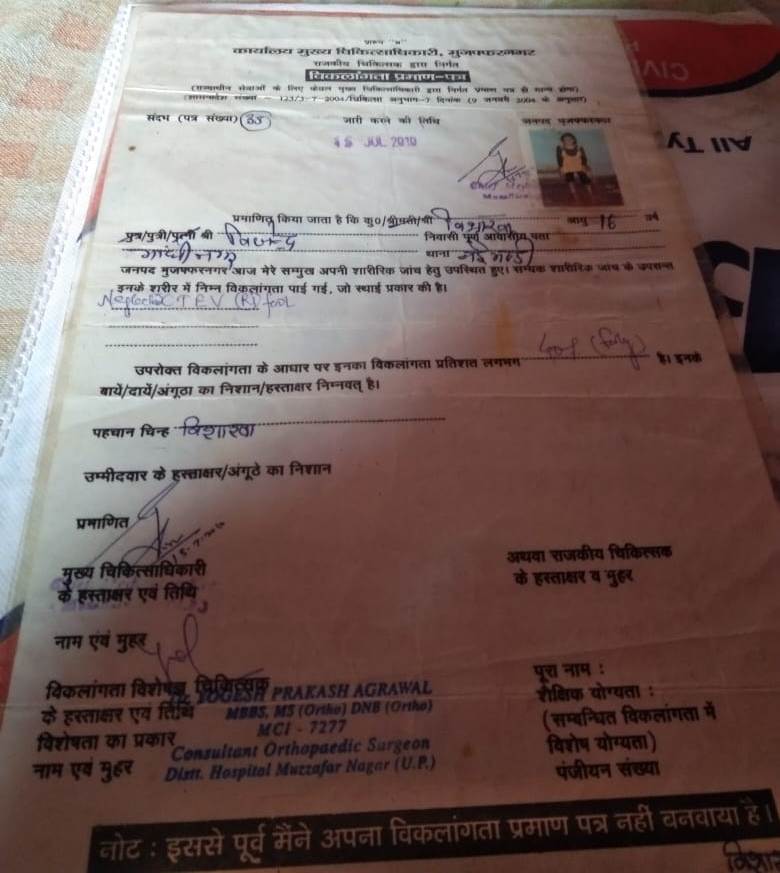 प्रारूप "ब"
कार्यालय मुख्य चिकित्साधिकारी, मुजफ्फरनगर
राजकीय चिकित्सक द्वारा निर्गत
विकलांगता प्रमाण-पत्र
(राज्याधीन सेवाओं के लिए केवल मुख्य चिकित्साधिकारी द्वारा निर्गत प्रमाण पत्र ही मान्य होगा)
(शासनादेश संख्या - 123/5-7-2004/चिकित्सा अनुभाग-7 दिनांक (9 जनवरी 2004 के अनुसार)
CIV
All Ty
संदर्भ (पत्र संख्या)
जारी करने की तिथि
जनपद मुजफ्फरनगर
15 JUL 2010
प्रमाणित किया जाता है कि कु0/श्रीमती/श्री विशाखा आयु 16 वर्ष
पुत्र/पुत्री/पत्नी श्री निवासी पूर्ण आवासीय पता
गांधी नगर थाना नई मंडी
जनपद मुजफ्फरनगर आज मेरे सम्मुख अपनी शारीरिक जांच हेतु उपस्थित हुए। सम्यक शारीरिक जांच के उपरान्त
इनके शरीर में निम्न विकलांगता पाई गई, जो स्थाई प्रकार की है।
Neglected CTEV (R) foot
उपरोक्त विकलांगता के आधार पर इनका विकलांगता प्रतिशत लगभग 40% (forty) है। इनके
बायें/दायें/अंगूठा का निशान/हस्ताक्षर निम्नवत् है।
पहचान चिन्ह विशाखा
उम्मीदवार के हस्ताक्षर/अंगूठे का निशान
प्रमाणित
15.7.2010
मुख्य चिकित्साधिकारी
के हस्ताक्षर एवं तिथि
अथवा राजकीय चिकित्सक
के हस्ताक्षर व मुहर
नाम एवं मुहर
विकलांगता विशेषज्ञ चिकित्सक
के हस्ताक्षर एवं तिथि
विशेषता का प्रकार
नाम एवं मुहर
Dr. YOGESH PRAKASH AGRAWAL
MBBS, MS (Ortho) DNB (Ortho)
MCI - 7277
Consultant Orthopaedic Surgeon
Distt. Hospital Muzzafar Nagar (U.P.)
पूरा नाम :
शैक्षिक योग्यता :
(सम्बन्धित विकलांगता में
विशेष योग्यता)
पंजीयन संख्या
नोट : इससे पूर्व मैंने अपना विकलांगता प्रमाण पत्र नहीं बनवाया है।